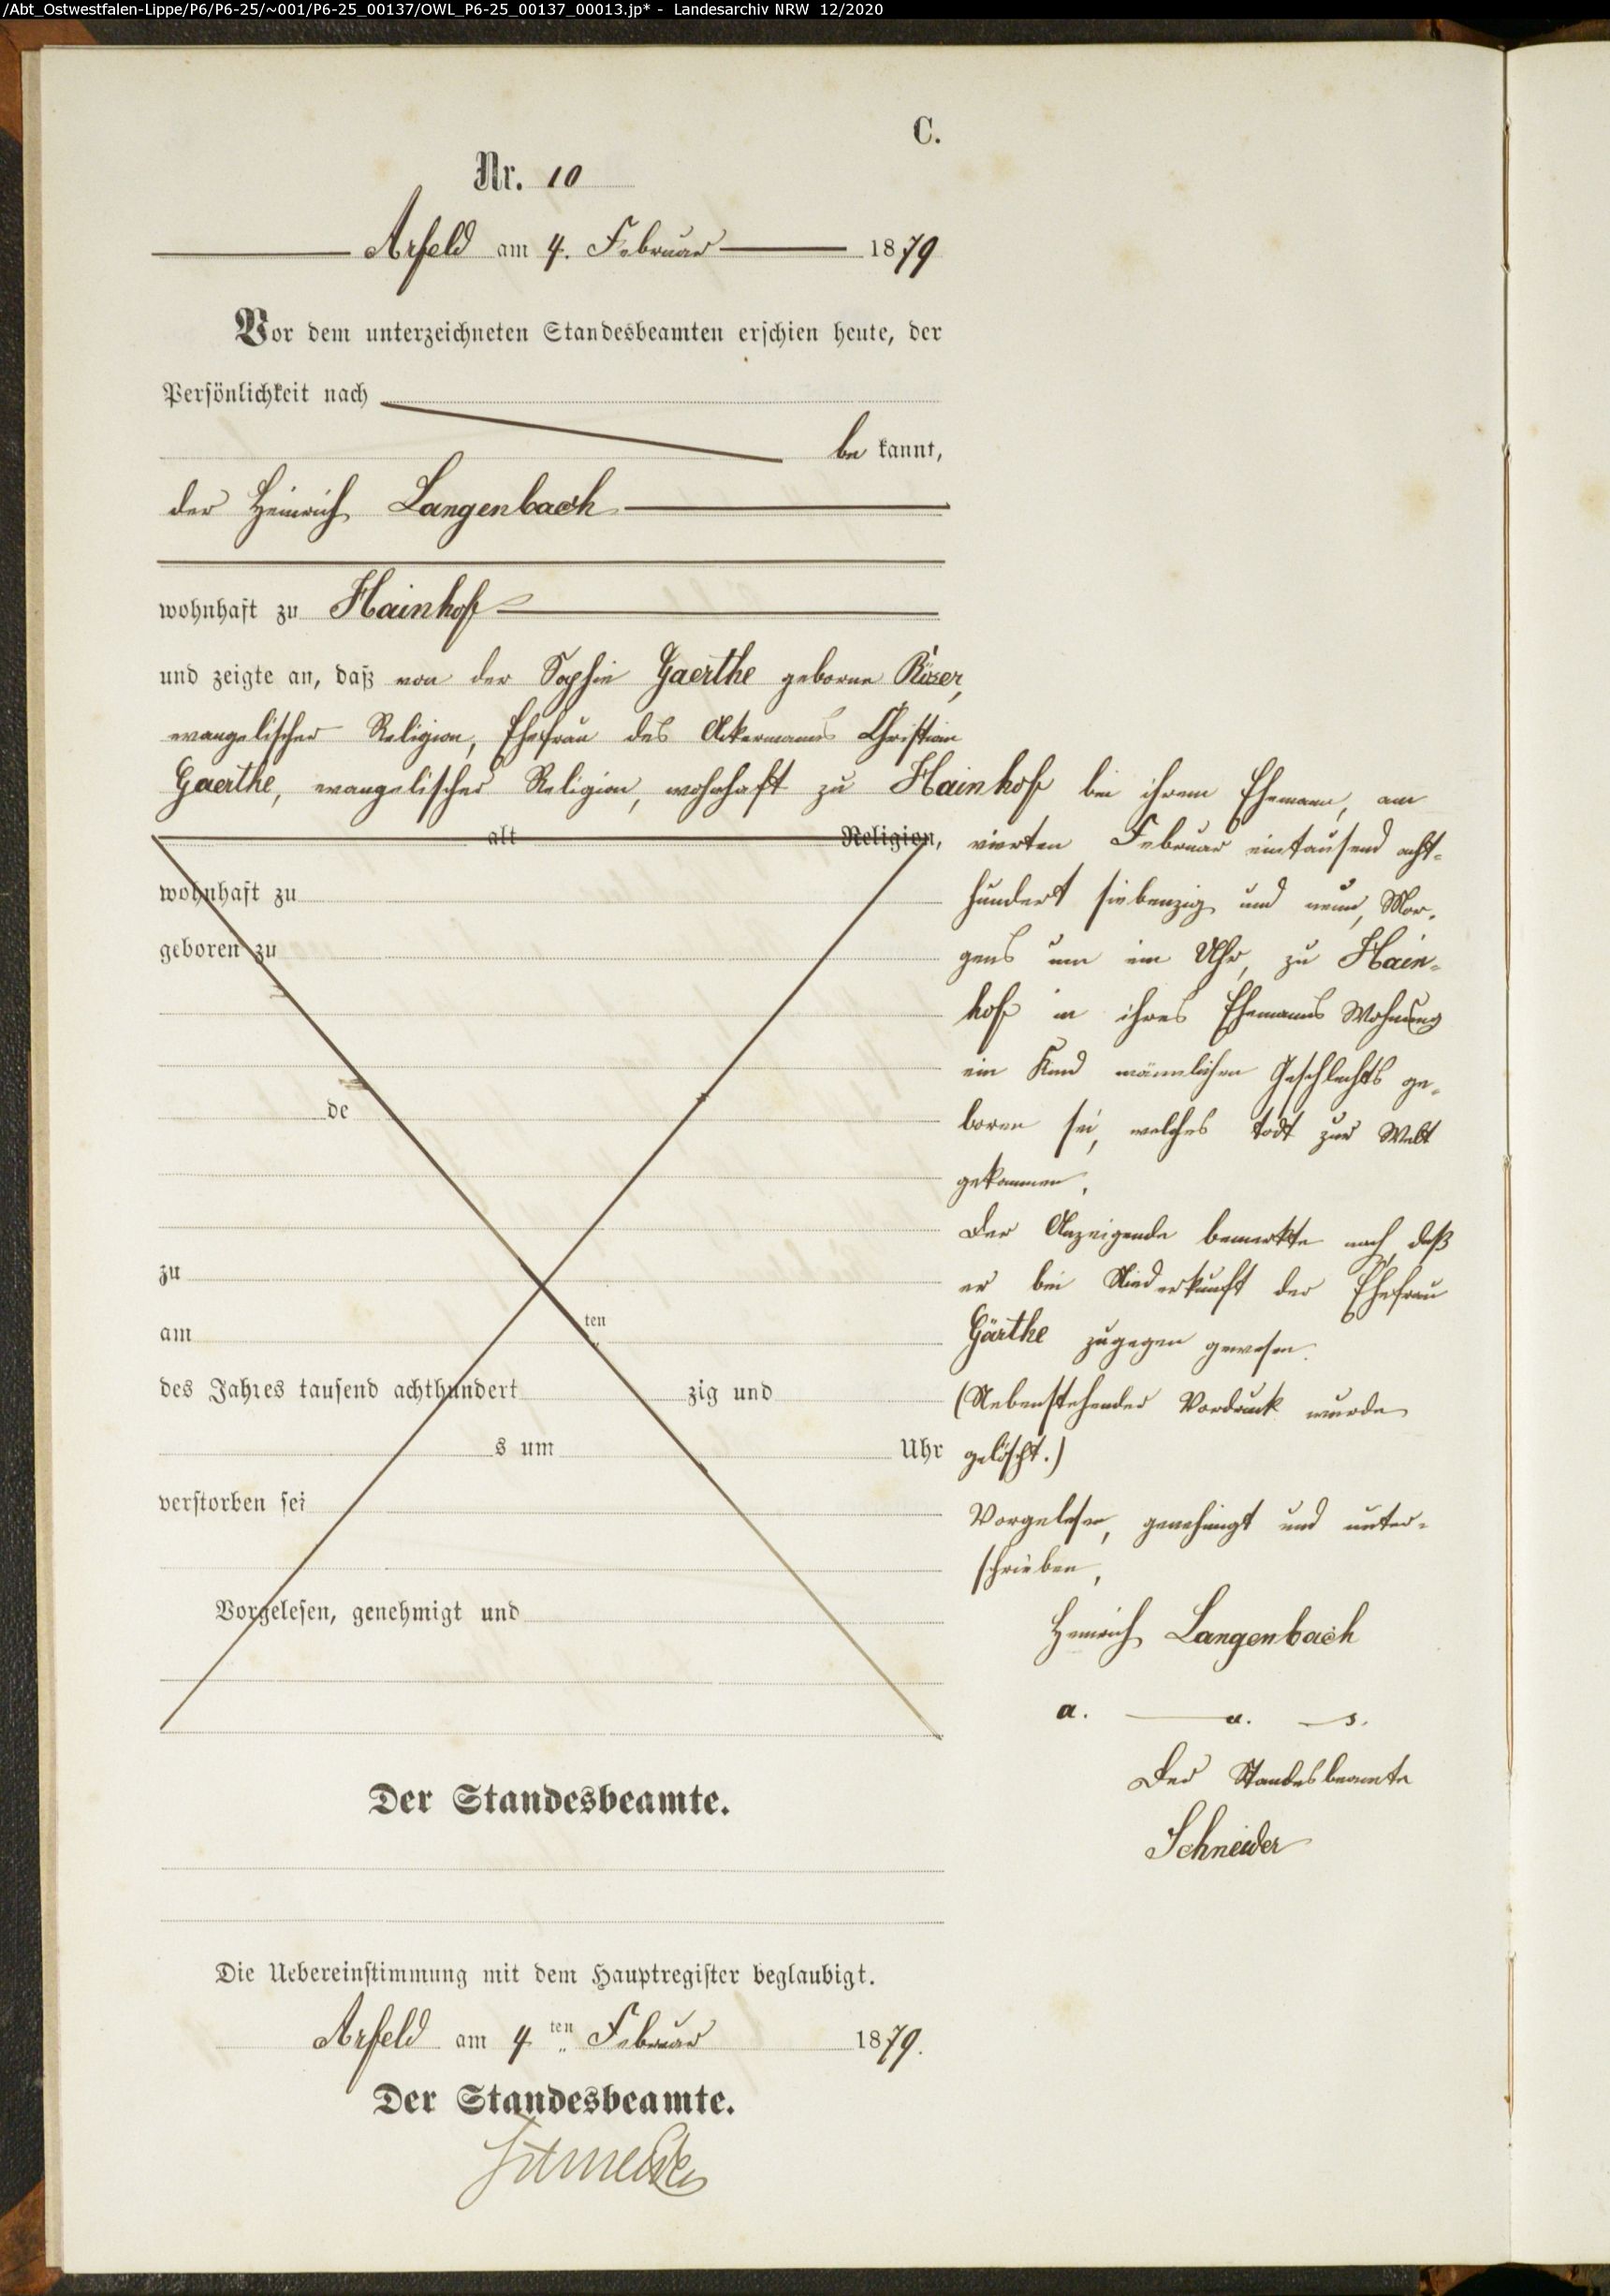 /Abt_Ostwestfalen-Lippe/P6/P6-25/~001/P6-25_00137/OWL_P6-25_00137_00013.jp* - Landesarchiv NRW 12/2020
C.
Nr. 10
Arfeld am 4. Februar 1879
Vor dem unterzeichneten Standesbeamten erschien heute, der
Persönlichkeit nach
be kannt,
der Heinrich Langenbach
wohnhaft zu Hainhof
und zeigte an, daß von der Sophie Gaerthe geborne Röser,
evangelischer Religion, Ehefrau des Ackermanns Christian
Gaerthe, evangelischer Religion, wohnhaft zu Hainhof bei ihrem Ehemann, am
alt Religion,
wohnhaft zu
geboren zu
de
zu
am ten
des Jahres tausend achthundert zig und
s um Uhr
verstorben sei
Vorgelesen, genehmigt und
vierten Februar eintausend acht-
hundert siebenzig und neun, Mor-
gens um ein Uhr, zu Hain-
hof in ihres Ehemanns Wohnung
ein Kind männlichen Geschlechts ge-
boren sei, welches todt zur Welt
gekommen.
Der Anzeigende bemerkte noch, daß
er bei Niederkunft der Ehefrau
Gärthe zugegen gewesen.
(Nebenstehender Vordruck wurde
gelöscht.)
Vorgelesen, genehmigt und unter-
schrieben,
Heinrich Langenbach
a. u. s.
Der Standesbeamte
Schneider
Der Standesbeamte.
Die Uebereinstimmung mit dem Hauptregister beglaubigt.
Arfeld am 4 ten Februar 1879.
Der Standesbeamte.
Schneider